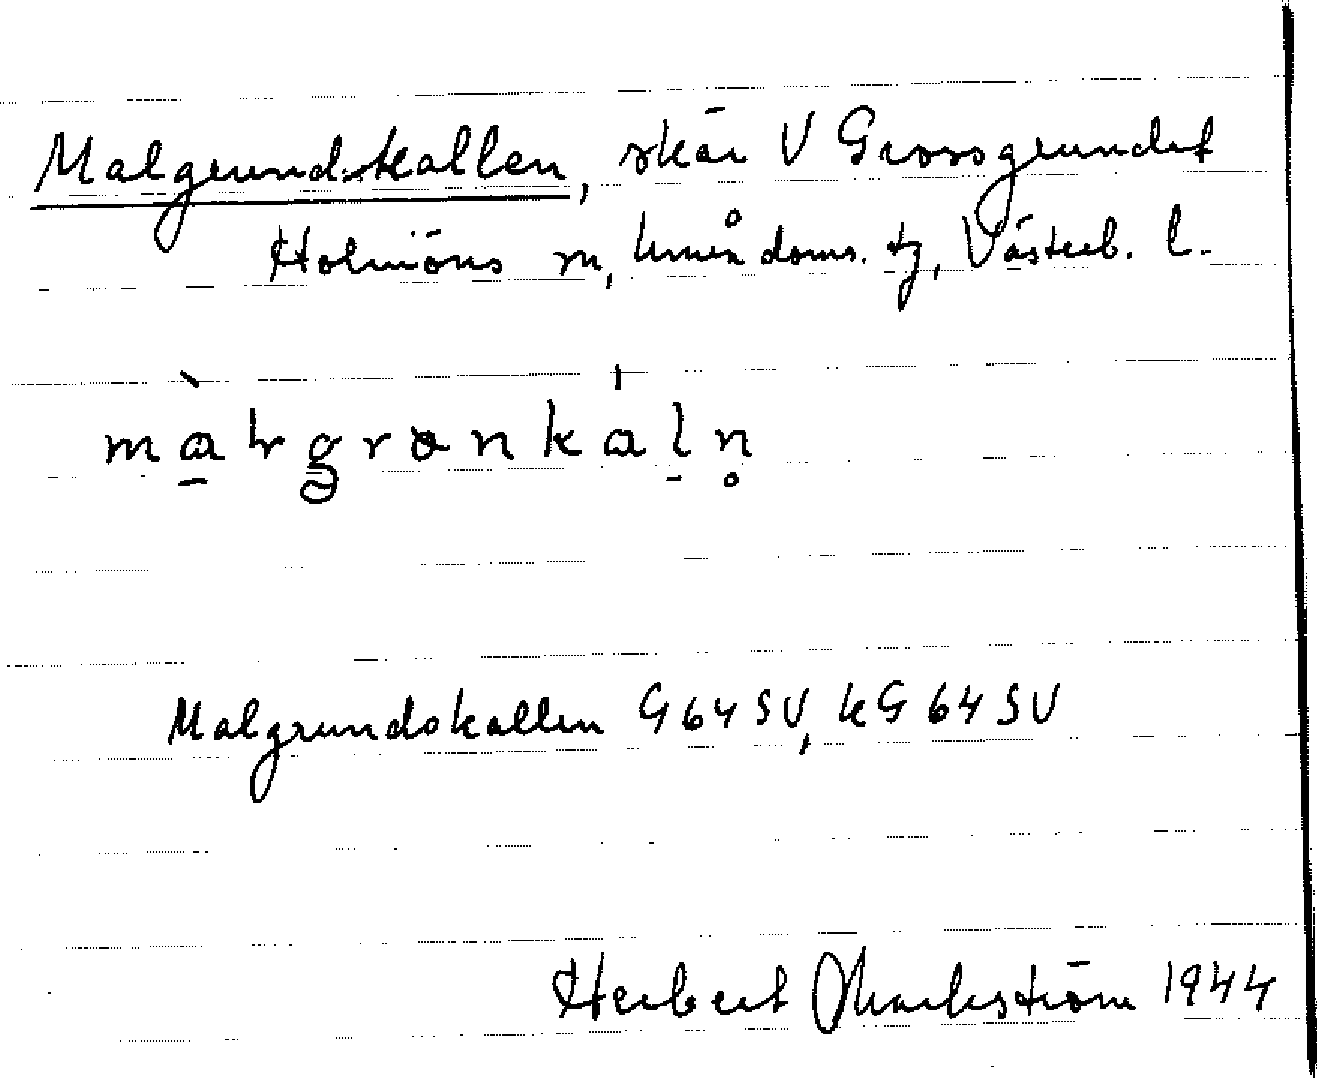 Malgrundskallen, skär V Grossgrundet
Holmöns sn, Umeå doms. tg, Västerb. l.
Malgrundskallen G64SV, kG64SV
Herbert Markström 1944